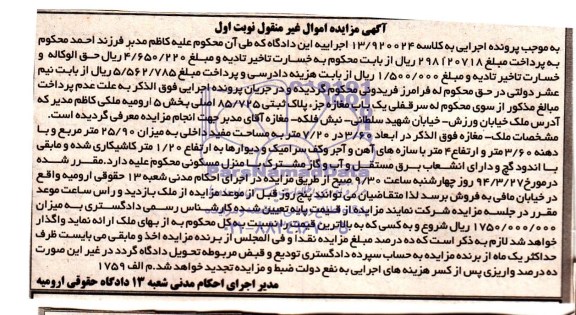 آگهی مزایده اموال غیر منقول نوبت اول
به موجب پرونده اجرایی به کلاسه ۱۳/۹۲۰۰۲۴ اجراییه این دادگاه که طی آن محکوم علیه کاظم مدبر فرزند احمد محکوم
به پرداخت مبلغ ۲۹۸۱۲۰۷۱۸ ریال از بابت محکوم به خسارت تاخیر تادیه و مبلغ ۴/۶۵۰/۲۲۰ ریال حق الوکاله و
خسارت تاخیر تادیه و مبلغ ۱/۵۰۰/۰۰۰ ریال از بابت هزینه دادرسی و پرداخت مبلغ ۵/۵۶۲/۷۸۵ ریال از بابت نیم
عشر دولتی در حق محکوم له فرامرز فریدونی محکوم گردیده و در جریان پرونده اجرایی فوق الذکر به علت عدم پرداخت
مبالغ مذکور از سوی محکوم له سرقفلی یک باب مغازه جزء پلاک ثبتی ۸۵/۷۲۵ اصلی بخش ۵ ارومیه ملکی کاظم مدبر که
آدرس ملک خیابان ورزش- خیابان شهید سلطانی- نبش فلکه- مغازه آقای مدبر جهت انجام مزایده معرفی گردیده است.
مشخصات ملک- مغازه فوق الذکر در ابعاد ۳/۶۰ در ۷/۲۰ متر به مساحت مفید داخلی به میزان ۲۵/۹۰ متر مربع و با
دهنه ۳/۶۰ متر و ارتفاع ۴ متر با سازه های آهن و آجر وکف سرامیک و دیوارها به ارتفاع ۱/۲۰ متر کاشیکاری شده و مابقی
با اندود گچ و دارای انشعاب برق مستقل و آب و گاز مشترک با منزل مسکونی محکوم علیه دارد. مقرر شده
درمورخ ۹۴/۳/۲۷ روز چهارشنبه ساعت ۹/۳۰ صبح از طریق مزایده در اجرای احکام مدنی شعبه ۱۳ حقوقی ارومیه واقع
در خیابان مافی به فروش برسد لذا متقاضیان می توانند پنج روز قبل از موعد مزایده از ملک بازدید و راس ساعت موعد
مقرر در جلسه مزایده شرکت نمایند مزایده از قیمت پایه تعیین شده کارشناس رسمی دادگستری به میزان
۱۷۵۰/۰۰۰/۰۰۰ ریال شروع و به کسی که به بالاترین قیمت نسبت به کل محکوم به از بهای ملک ارائه نماید واگذار
خواهد شد لازم به ذکر است که ده درصد مبلغ مزایده نقدا و فی المجلس از برنده مزایده اخذ و مابقی می بایست ظرف
حداکثر یک ماه از برنده مزایده به حساب سپرده دادگستری تودیع و قبض مربوطه تحویل دادگاه گردد در غیر این صورت
ده درصد واریزی پس از کسر هزینه های اجرایی به نفع دولت ضبط و مزایده تجدید خواهد شد. م الف ۱۷۵۹
مدیر اجرای احکام مدنی شعبه ۱۳ دادگاه حقوقی ارومیه